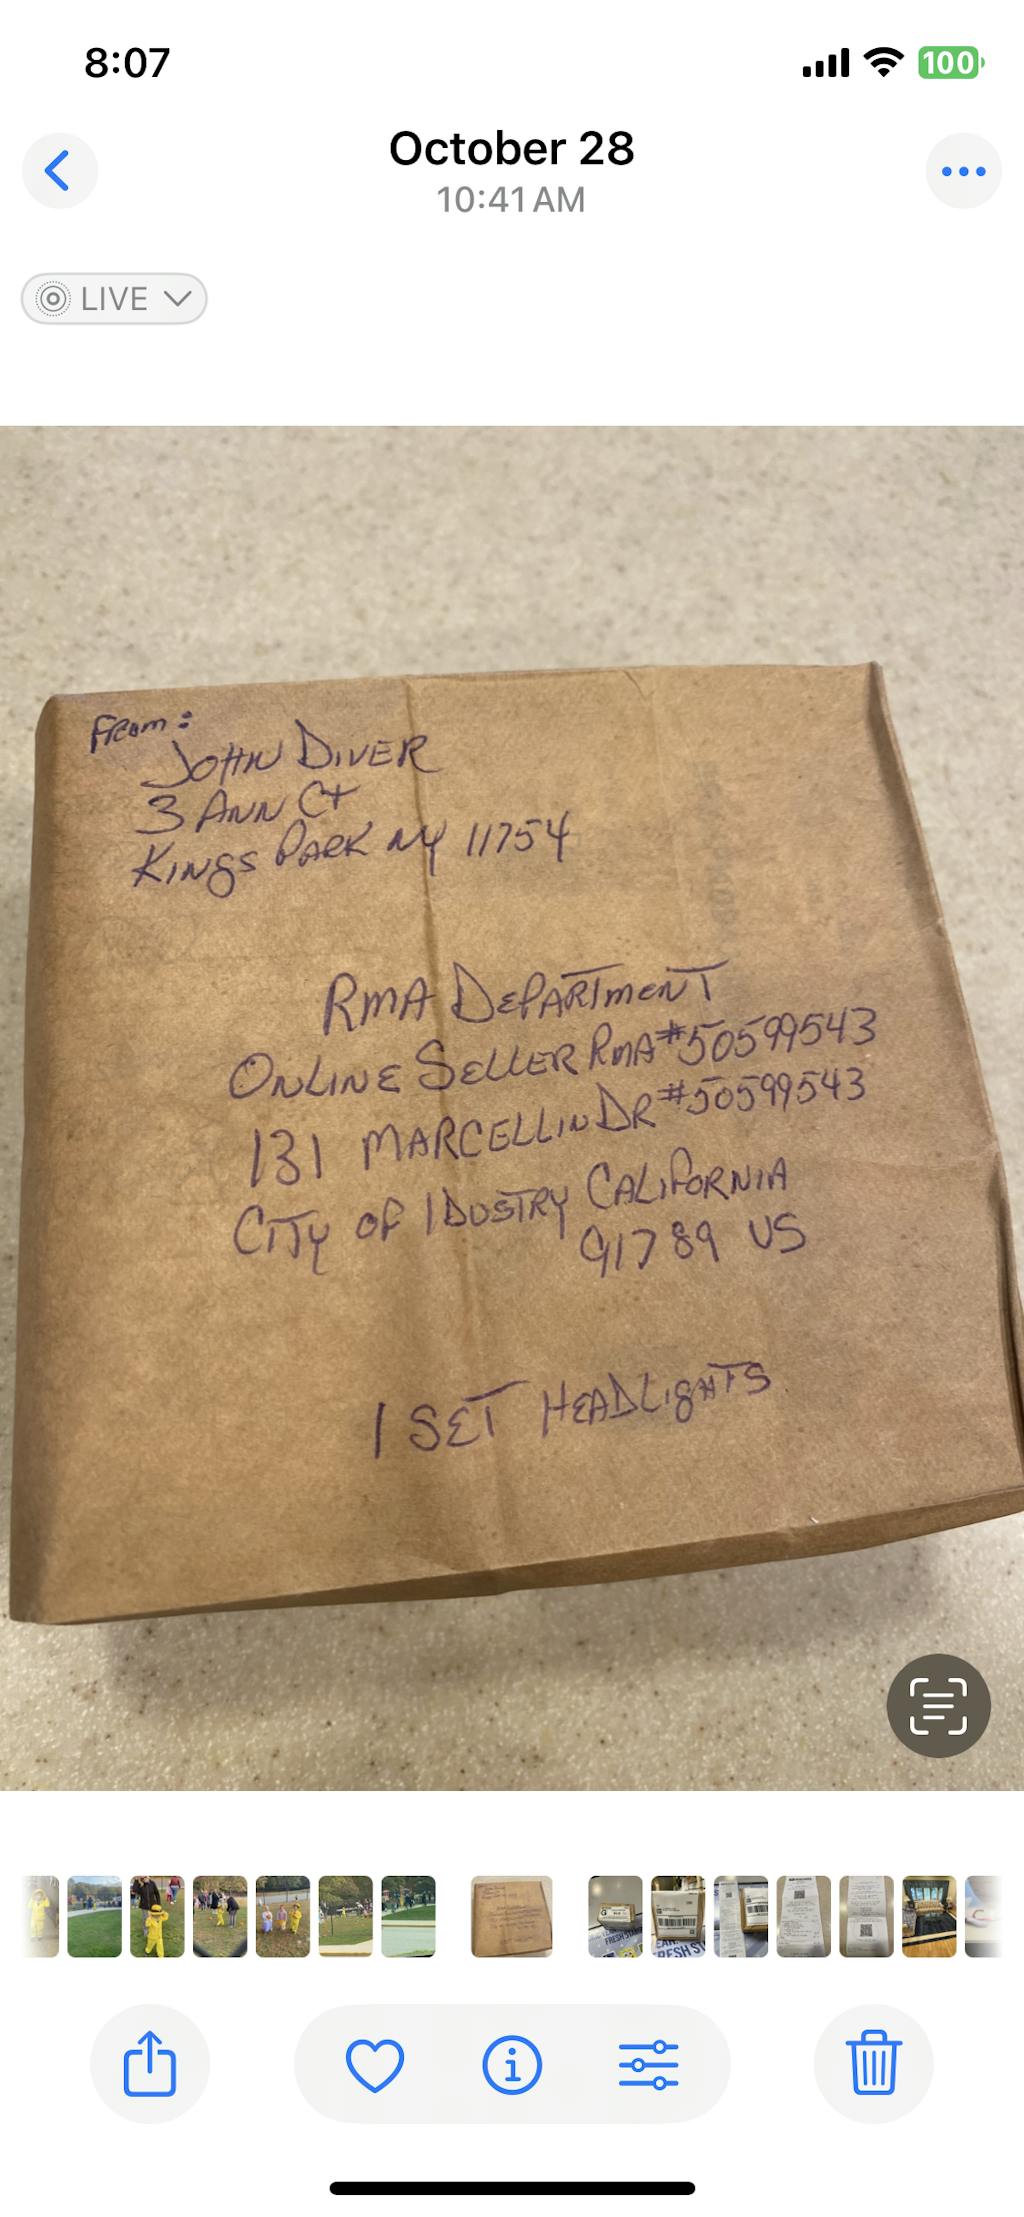 8:07
100
October 28
10:41 AM
LIVE
From:
JOHN DIVER
3 ANN Ct
KINGS PARK NY 11754
RMA DEPARTMENT
ONLINE SELLER RMA#50599543
131 MARCELLIN DR #50599543
CITY OF IDUSTRY CALIFORNIA
91789 US
1 SET HEADLIGHTS